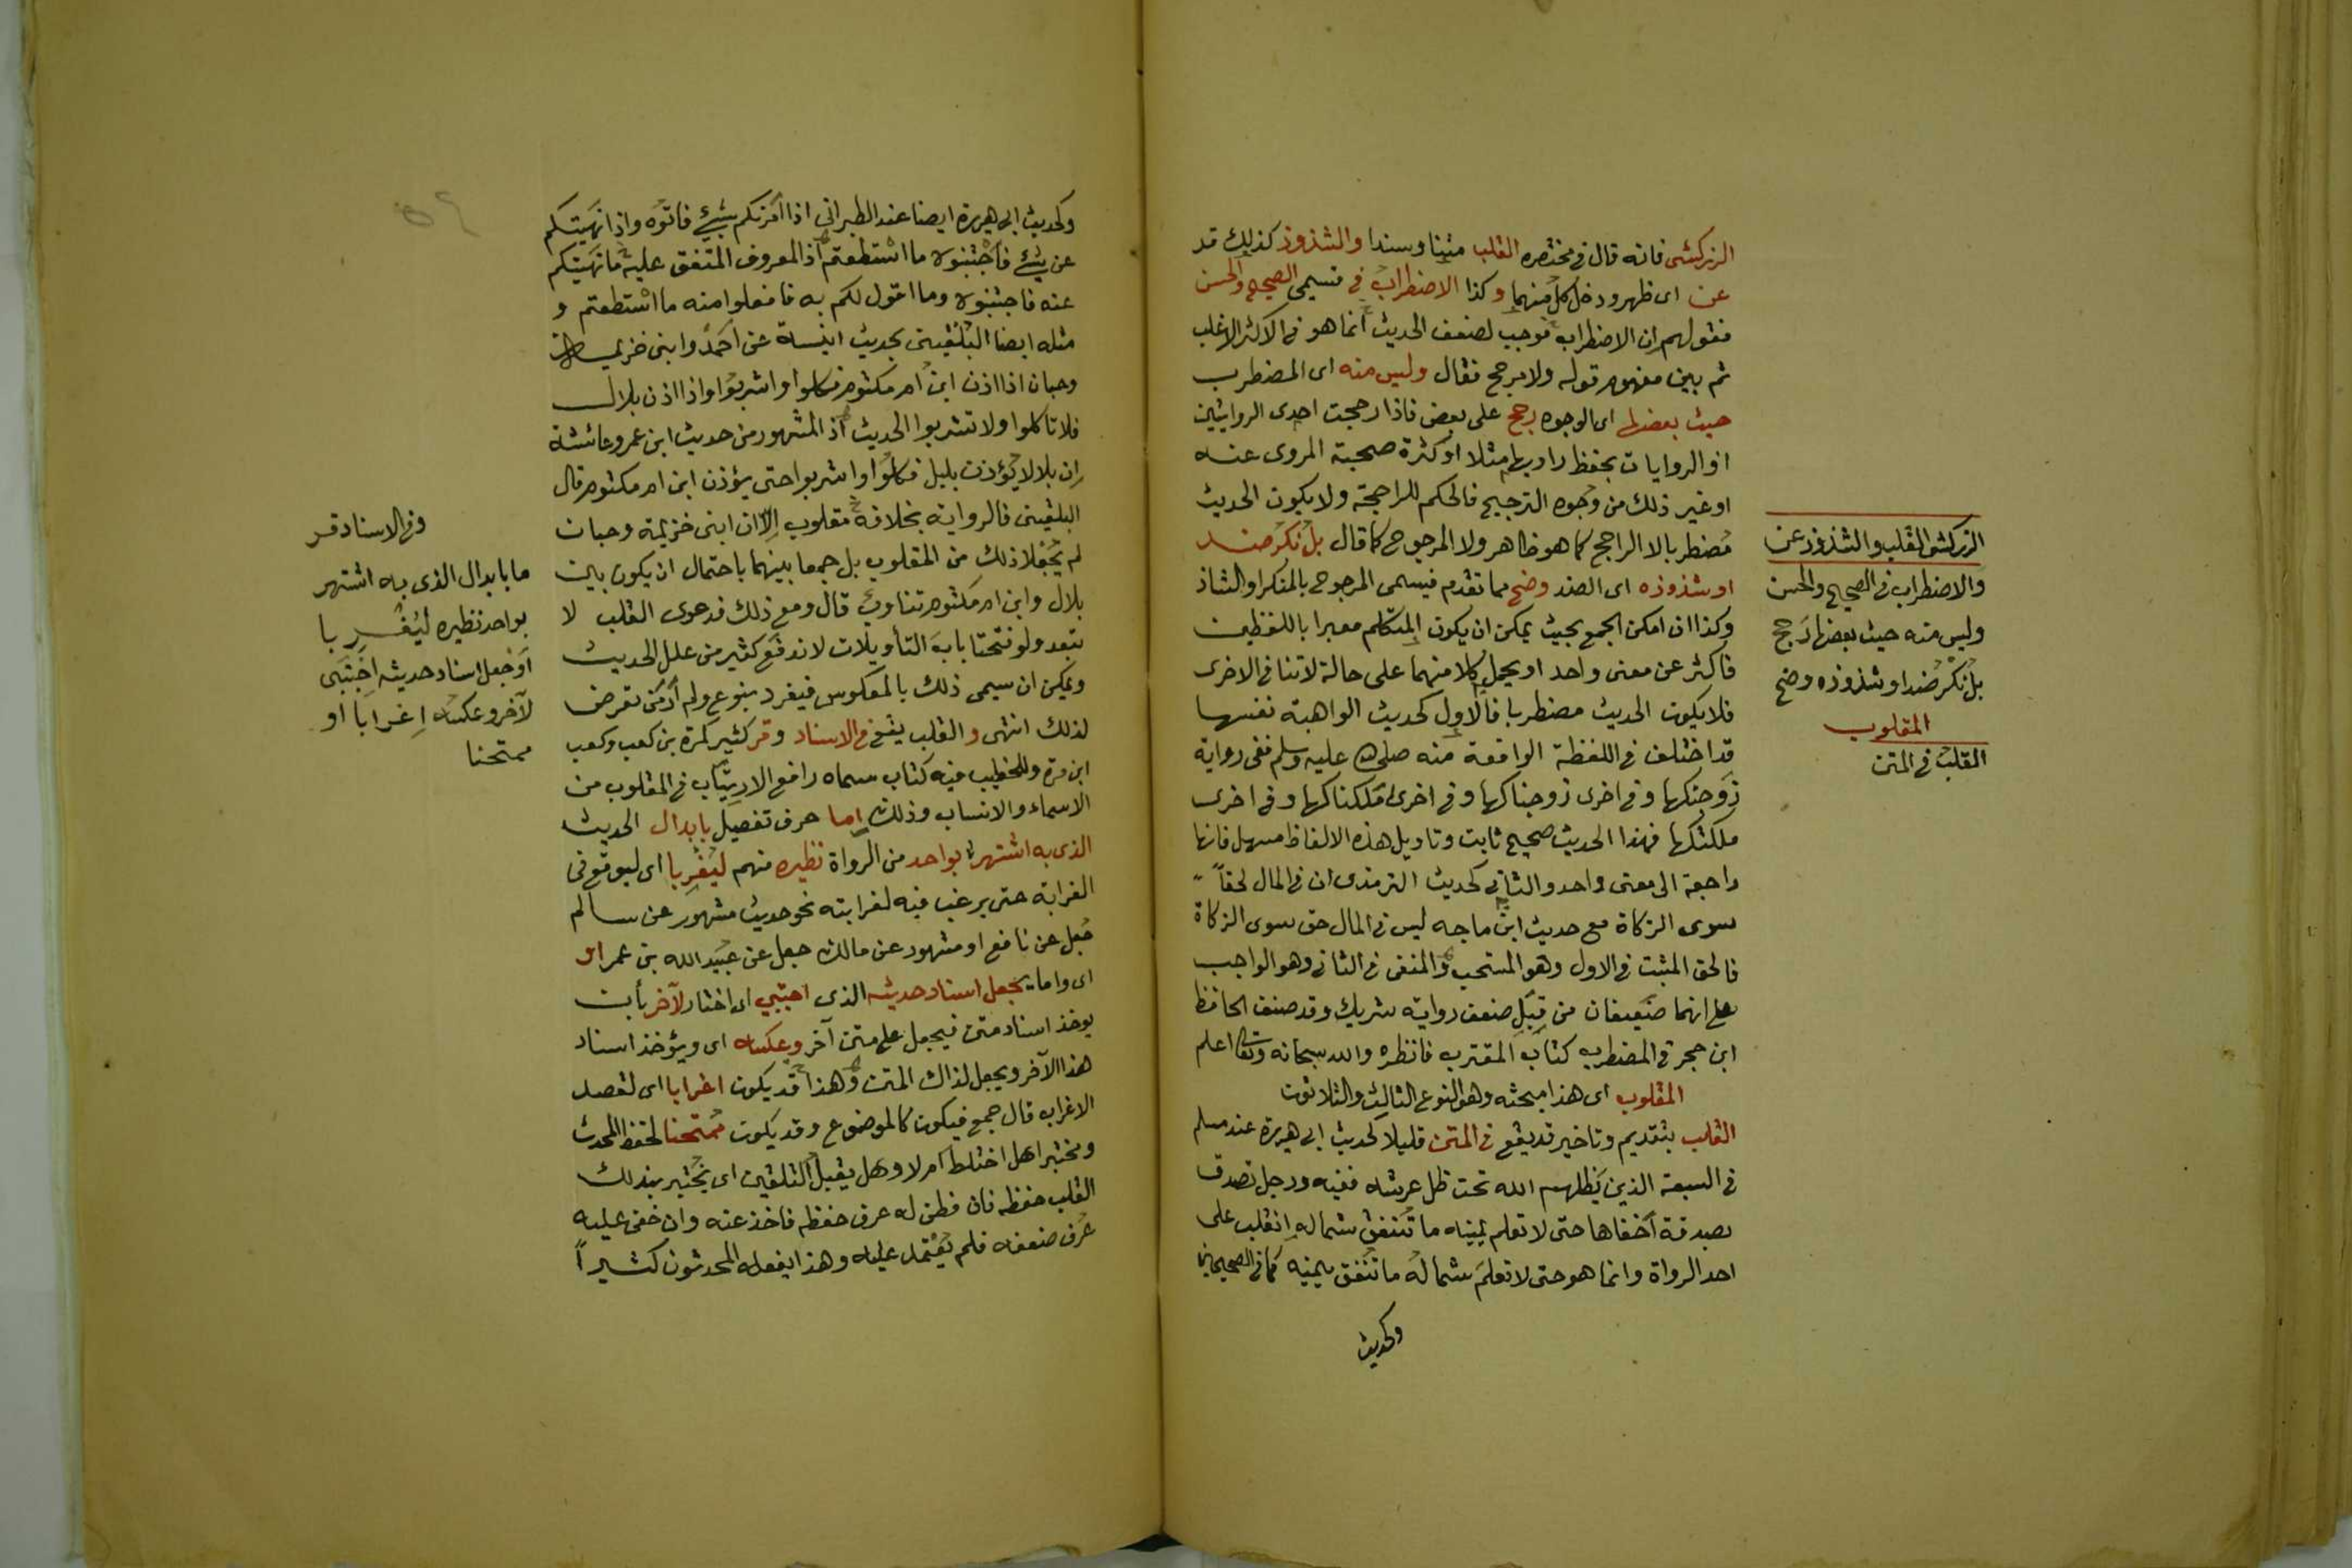 الزركشى فانه قال فى مختصره القلب متنا وسندا والشذوذ كذلك قد
عن اى ظهر ودخل كل منهما وكذا الاضطراب فى قسيمى الصحيح والحسن
فقولهم ان الاضطراب موجب لضعف الحديث انما هو فى الاكثر الاغلب
ثم بين مفهوم قوله ولا مرجح فقال وليس منه اى المضطرب
حيث بعضها اى الوجوه رجح على بعض فاذا رجحت احدى الروايتين
او الروايات بحفظ راويها مثلا او كثرة صحبة المروى عنه
او غير ذلك من وجوه الترجيح فالحكم للراجحة ولا يكون الحديث
مضطربا لا الراجح كما هو ظاهر ولا المرجوح كما قال بل نكر ضد
او شذوذه اى الضد وضح مما تقدم فيسمى المرجوح بالمنكر او الشاذ
وكذا ان امكن الجمع بحيث يمكن ان يكون المتكلم معبرا باللفظين
فاكثر عن معنى واحد او يحمل كلا منهما على حالة لا تنافى الاخرى
فلا يكون الحديث مضطربا فالاول كحديث الواهبة نفسها
قد اختلف فى اللفظة الواقعة منه صلى الله عليه وسلم ففى رواية
زوجتكها وفى اخرى زوجناكها وفى اخرى ملكناكها وفى اخرى
ملكتكها فهذا الحديث صحيح ثابت وتاويل هذه الالفاظ سهل فانها
راجعة الى معنى واحد والثانى كحديث الترمذى ان فى المال لحقا
سوى الزكاة مع حديث ابن ماجه ليس فى المال حق سوى الزكاة
فالحق المثبت فى الاول وهو المستحب والمنفى فى الثانى وهو الواجب
على انهما ضعيفان من قبل ضعف رواية شريك وقد صنف الحافظ
ابن حجر فى المضطرب كتاب المقترب فانظره والله سبحانه وتعالى اعلم
المقلوب اى هذا مبحثه وهو النوع الثالث والثلاثون
القلب بتقديم وتاخير قد يقع فى المتن قليلا كحديث ابى هريرة عند مسلم
فى السبعة الذين يظلهم الله تحت ظل عرشه ففيه ورجل تصدق
بصدقة اخفاها حتى لا تعلم يمينه ما تنفق شماله انقلب على
احد الرواة وانما هو حتى لا تعلم شماله ما تنفق يمينه كما فى الصحيحين
وكحديث
الزركشى القلب والشذوذ عن
والاضطراب فى الصحيح والحسن
وليس منه حيث بعضها رجح
بل نكر ضد او شذوذه وضح
المقلوب
القلب فى المتن
وكحديث ابى هريرة ايضا عند الطبرانى اذا امرتكم بشئ فاتوه واذا نهيتكم
عن شئ فاجتنبوه ما استطعتم اذ المعروف المتفق عليه ما نهيتكم
عنه فاجتنبوه وما اقول لكم به فافعلوا منه ما استطعتم و
مثله ايضا البلقينى بحديث انيسة عن احمد وابنى خزيمة
وحبان اذا اذن ابن ام مكتوم فكلوا واشربوا واذا اذن بلال
فلا تاكلوا ولا تشربوا الحديث اذ المشهور من حديث ابن عمر وعائشة
ان بلالا يؤذن بليل فكلوا واشربوا حتى يؤذن ابن ام مكتوم قال
البلقينى فالرواية بخلافه مقلوب الا ان ابنى خزيمة وحبان
لم يجعلا ذلك من المقلوب بل جمعا بينهما باحتمال ان يكون بين
بلال وابن ام مكتوم تناوب قال ومع ذلك فدعوى القلب لا
تبعد ولو فتحنا باب التأويلات لاندفع كثير من علل الحديث
ويمكن ان يسمى ذلك بالمعكوس فيفرد بنوع ولم ار من تعرض
لذلك انتهى والقلب يقع فى الاسناد وقر كثير كمرة بن كعب وكعب
ابن مرة وللخطيب فيه كتاب سماه رافع الارتياب فى المقلوب من
الاسماء والانساب وذلك اما حرف تفصيل بابدال الحديث
الذى به اشتهر بواحد من الرواة نظيره منهم ليغربا اى ليوقع فى
الغرابة حتى يرغب فيه لغرابته نحو حديث مشهور عن سالم
جعل عن نافع او مشهور عن مالك جعل عن عبيد الله بن عمر او
اى واما يجعل اسناد حديثه الذى اجتبى اى اختار لآخر بأن
يوخذ اسناد متن فيجعل على متن آخر وعكسه اى ويؤخذ اسناد
هذا الآخر ويجعل لذاك المتن وهذا قد يكون اغرابا اى لقصد
الاغراب قال جمع فيكون كالموضوع وقد يكون ممتحنا لحفظ المحدث
ومختبرا هل اختلط ام لا وهل يقبل التلقين اى يختبر بذلك
القلب حفظه فان فطن له عرف حفظه فاخذ عنه وان خفى عليه
عرف ضعفه فلم يعتمد عليه وهذا يفعله المحدثون كثيرا
وفى الاسناد قر
ما بابدال الذى به اشتهر
بواحد نظيره ليغربا
او جعل اسناد حديث اجتبى
لآخر وعكسه اغرابا او
ممتحنا